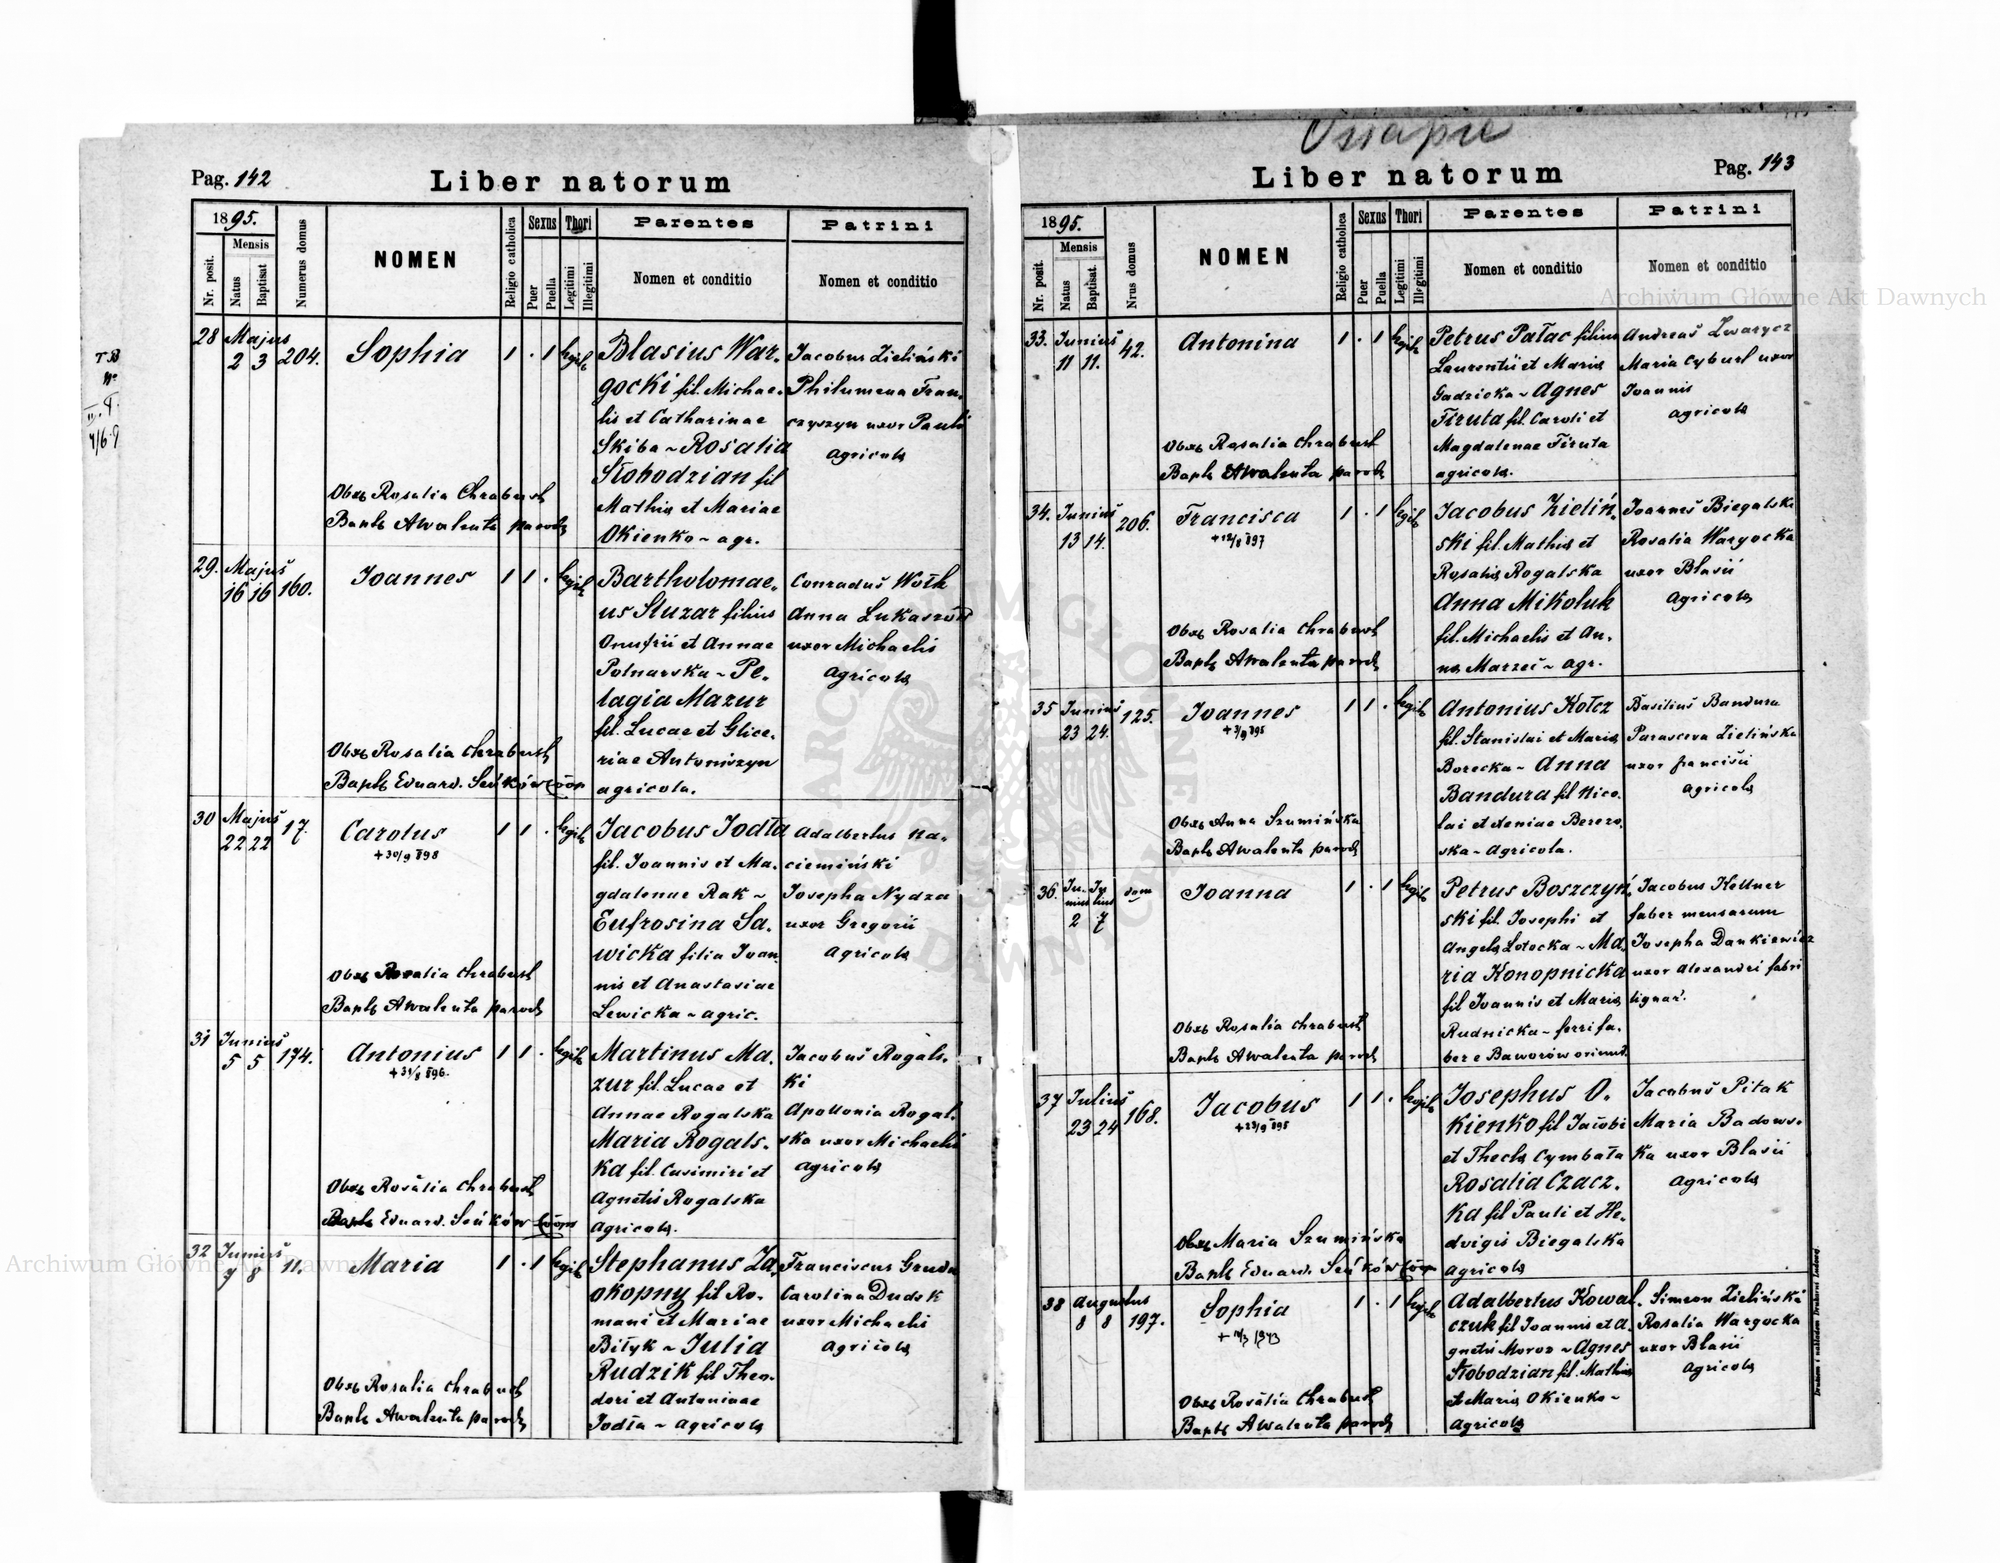 Ossapie
Pag. 142
Liber natorum
1895.
Nr. posit.
Mensis
Natus
Baptisat
Numerus domus
NOMEN
Religio catholica
Sexus
Puer
Puella
Thori
Legitimi
Illegitimi
Parentes
Nomen et conditio
Patrini
Nomen et conditio
28 Majus 2 3 204. Sophia 1 . 1 legit
Blasius War-
gocki fil. Michae-
lis et Catharinae
Skiba ~ Rosalia
Słobodzian fil
Mathia et Mariae
Okienko ~ agr.
Jacobus Zieliński
Philumena Fran-
czyszyn uxor Pauli
agricola
Obst Rosalia Chrabust
Bapt Awalenta paroch
29. Majus 16 16 160. Joannes 1 1 . legit
Bartholomae-
us Sluzar filius
Onufrii et Annae
Polnarska ~ Pe-
lagia Mazur
fil. Lucae et Glice-
riae Antoniszyn
agricola.
Conradus Wołk
Anna Lukaszów
uxor Michaelis
agricola
Obst Rosalia Chrabust
Bapt Eduard. Seńków coop
30 Majus 22 22 17. Carolus 1 1 . legit
+ 30/9 898
Jacobus Jodła
fil. Joannis et Ma-
gdalenae Rak ~
Eufrosina Sa-
wicka filia Joan-
nis et Anastasiae
Lewicka ~ agric.
Adalbertus Na-
ciemiński
Josepha Nydza
uxor Gregorii
agricola
Obst Rosalia Chrabust
Bapt Awalenta paroch
31 Junius 5 5 174. Antonius 1 1 . legit
+ 31/8 896.
Martinus Ma-
zur fil. Lucae et
Annae Rogalska
Maria Rogals-
ka fil. Casimiri et
Agnetis Rogalska
agricola.
Jacobus Rogals-
ki
Apollonia Rogal-
ska uxor Michaelis
agricola
Obst Rosalia Chrabust
Bapt Eduard. Seńków coop
32 Junius 7 8 11. Maria 1 . 1 legit
Stephanus Za-
okopny fil Ro-
mani et Mariae
Biłyk ~ Julia
Rudzik fil Theo-
dori et Antoninae
Jodła ~ agricola
Franciscus Gruda
Carolina Dudek
uxor Michaelis
agricola
Obst Rosalia Chrabust
Bapt Awalenta paroch
Liber natorum
Pag. 143
1895.
Nr. posit.
Mensis
Natus
Baptisat.
Nrus domus
NOMEN
Religio catholica
Sexus
Puer
Puella
Thori
Legitimi
Illegitimi
Parentes
Nomen et conditio
Patrini
Nomen et conditio
33. Junius 11 11. 42. Antonina 1 . 1 legit
Petrus Pałac filius
Laurentii et Maria
Gadzicka ~ Agnes
Firuta fil. Caroli et
Magdalenae Firuta
agricola.
Andreas Zwarycz
Maria Cyburl uxor
Joannis
agricola
Obst Rosalia Chrabust
Bapt Awalenta paroch
34. Junius 13 14. 206. Francisca 1 . 1 legit
+ 12/8 897
Jacobus Zieliń-
ski fil. Mathia et
Rosalia Rogalska
Anna Mikoluk
fil. Michaelis et An-
na Marzeć ~ agr.
Joannes Biegalski
Rosalia Wargocka
uxor Blasii
agricola
Obst Rosalia Chrabust
Bapt Awalenta paroch
35 Junius 23 24. 125. Joannes 1 1 . legit
+ 3/9 895
Antonius Kołcz
fil. Stanislai et Maria
Borecka ~ Anna
Bandura fil Nico-
lai et Xeniae Berezo-
ska ~ agricola.
Basilius Bandura
Parasceva Zielińska
uxor Francisii
agricola
Obst Anna Szumińska
Bapt Awalenta paroch
36. Junius 2 Julius 7 dom Joanna 1 . 1 legit
Petrus Boszczyń-
ski fil. Josephi et
Angela Lotocka ~ Ma-
ria Konopnicka
fil Joannis et Maria
Rudnicka ~ ferri fa-
ber e Baworów oriund.
Jacobus Kellner
faber mensarum
Josepha Dankiewicz
uxor Alexandri fabri
lignar.
Obst Rosalia Chrabust
Bapt Awalenta paroch
37 Julius 23 24 168. Jacobus 1 1 . legit
+ 23/9 895
Josephus O-
kienko fil Jacobi
et Thecla Cymbała
Rosalia Czacz-
ka fil Pauli et He-
dvigis Biegalska
agricola
Jacobus Pitak
Maria Badows-
ka uxor Blasii
agricola
Obst Maria Szumińska
Bapt Eduard. Seńków coop
38 Augustus 8 8 197. Sophia 1 . 1 legit
Adalbertus Kowal-
czuk fil Joannis et A-
gnetis Moroz ~ Agnes
Słobodzian fil. Mathia
et Maria Okienko ~
agricola
Simeon Zieliński
Rosalia Wargocka
uxor Blasii
agricola
Obst Rosalia Chrabust
Bapt Awalenta paroch
Drukiem i nakładem Drukarni Ludowej.
Archiwum Główne Akt Dawnych
Archiwum Główne Akt Dawnych